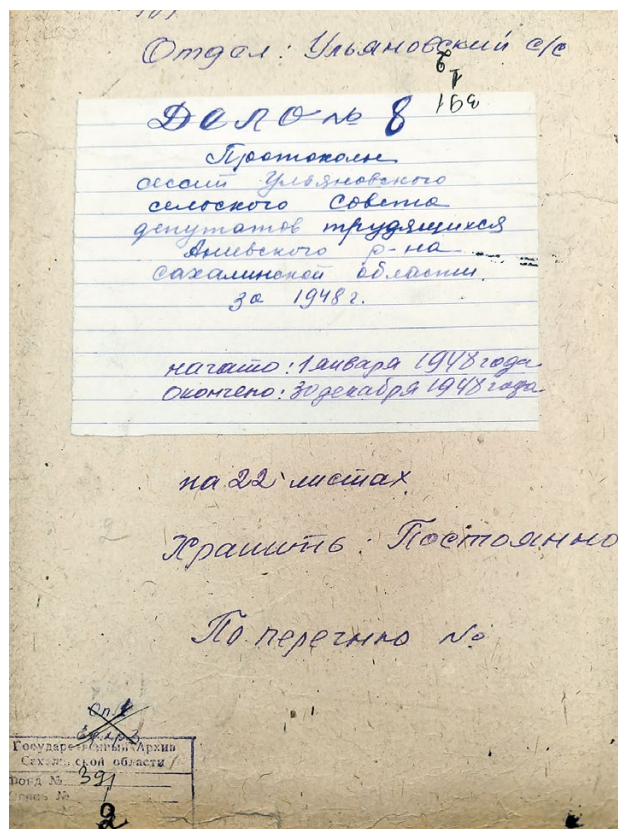 Отдел: Ульяновский с/с
2
1
391
Дело № 8
Протоколы
сессий Ульяновского
сельского Совета
депутатов трудящихся
Анивского р-на
Сахалинской области
за 1948 г.
начато: 1 января 1948 года
окончено: 30 декабря 1948 года
на 22 листах
Хранить: Постоянно
По перечню №
Оп. 1
Ед. хр. 2
Государственный Архив
Сахалинской области
Фонд № 391
Опись №
2